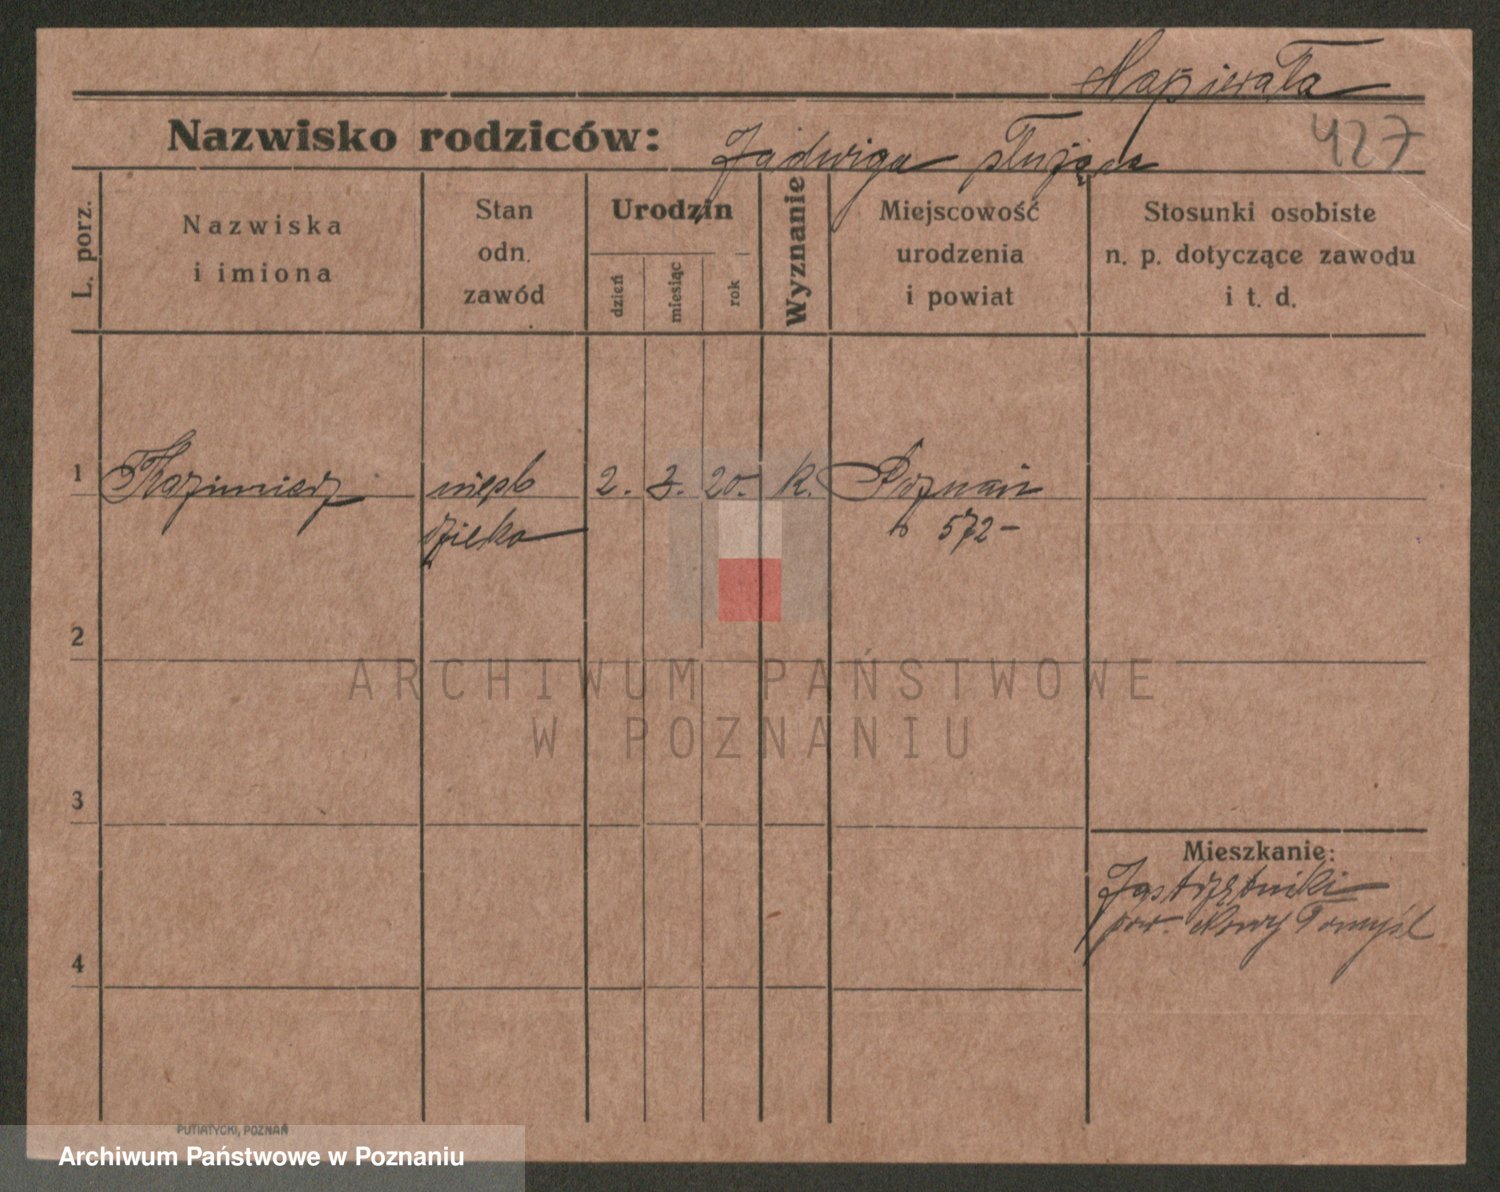 Napierała
Nazwisko rodziców: Jadwiga służąca
427
L. porz.
Nazwiska
i imiona
Stan
odn.
zawód
Urodzin
dzień
miesiąc
rok
Wyznanie
Miejscowość
urodzenia
i powiat
Stosunki osobiste
n. p. dotyczące zawodu
i t. d.
1 Kazimierz nieśl 2. 3. 20. k. Poznań
dziecko 572-
2
3
4
Mieszkanie:
Jastrzębniki
pow. Nowy Tomyśl
PUTIATYCKI, POZNAŃ
ARCHIWUM PAŃSTWOWE
W POZNANIU
Archiwum Państwowe w Poznaniu